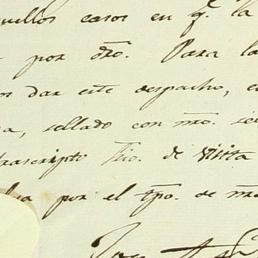 quellos casos en q. la
por dro. Para la
os dar este despacho, e
a, sellado con nro. se
trascripto Srio. de visita
por el tpo. de nro